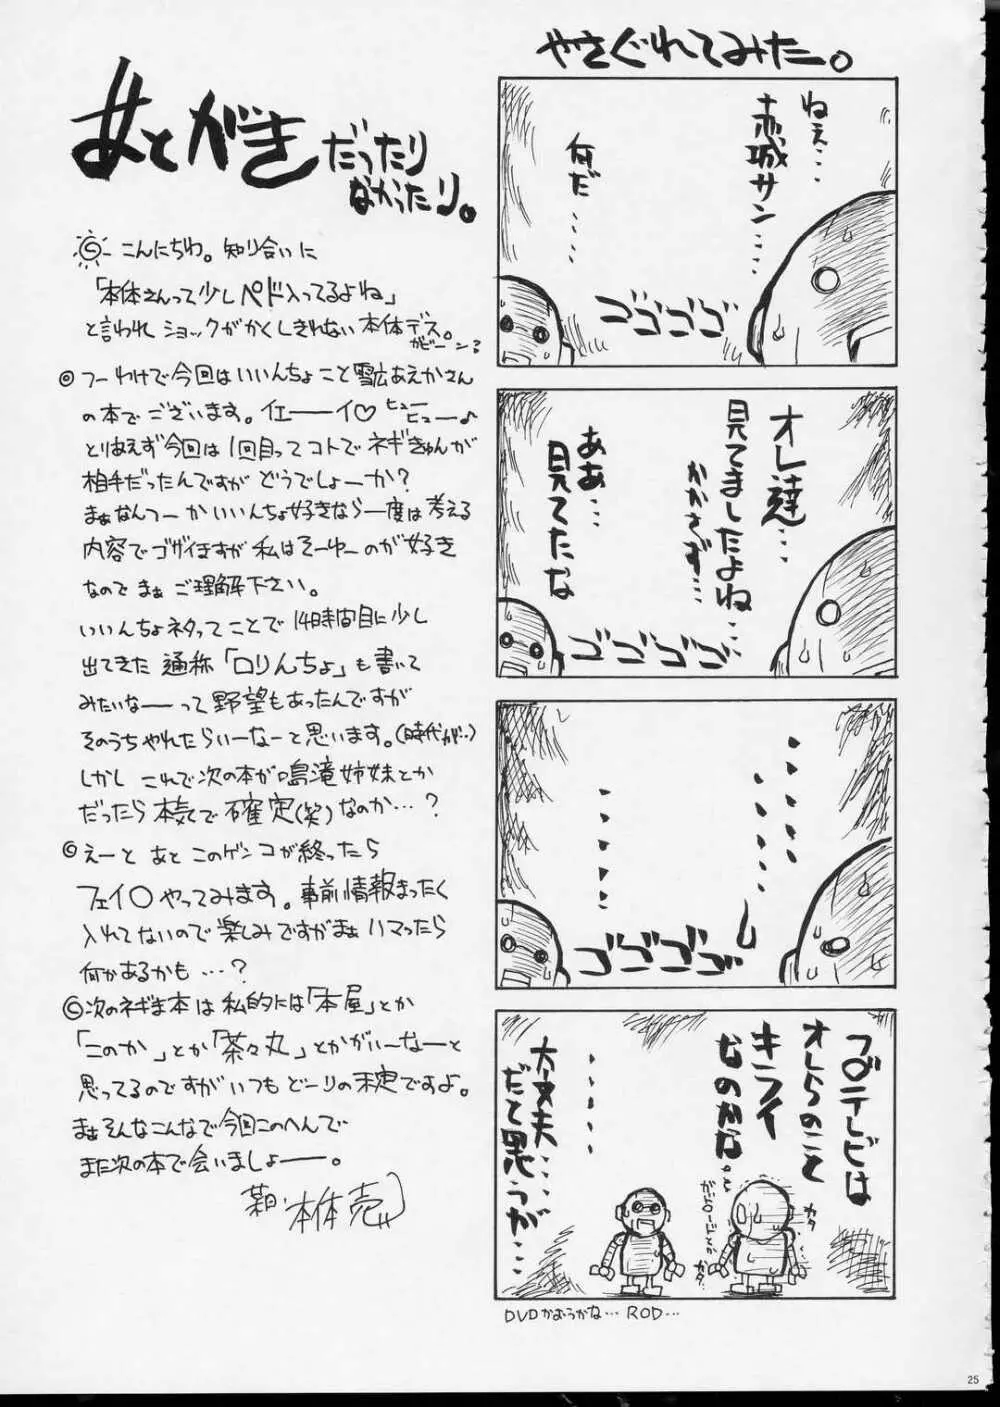 やさぐれてみたー。
ねぇ・・・
赤城サン・・・・
何だ・・・・
ゴゴゴゴ
オレ達・・・
見てましたよね・・・
かかさず・・・
ああ・・・
見てたな
ゴゴゴゴ
ゴゴゴゴ
フ○テレビは
オレらのこと
キライ
なのかな。
大丈夫・・・・
だと思うが・・・
カタ
カタ
DVDかおうかな… ROD…
あとがき だったり
なかったり。
こんにちわ。知り合いに
「本体さんって少しペド入ってるよね」
と言われ ショックがかくしきれない本体デス。
ガビーン?
◎ つーわけで今回はいいんちょこと雪広あえかさん
の本でございます。イエーーイ♡ ヒューヒュー♪
とりあえず今回は1回目ってコトでネギきゅんが
相手だったんですが どうでしょーか?
まぁなんつーか いいんちょ好きなら一度は考える
内容でゴザイますが 私はそーゆーのが好き
なので まぁ ご理解下さい。
いいんちょネタってことで 14時間目に少し
出てきた 通称「ロリんちょ」も書いて
みたいなーーって野望もあったんですが
そのうちやれたらいーなーと思います。(時代が…)
しかし これで次の本が鳴滝姉妹とか
だったら 本気で確定(笑)なのか…?
◎ えーと あと このゲンコが終ったら
フェイ○やってみます。事前情報まったく
入れてないので楽しみですがまぁ ハマったら
何かあるかも…?
◎ 次のネギま本は 私的には「本屋」とか
「このか」とか「茶々丸」とかがいーなーと
思ってるのですが いつもどーりの未定ですよ。
まぁそんなこんなで 今回このへんで
また次の本で会いましょーー。
本体売
25